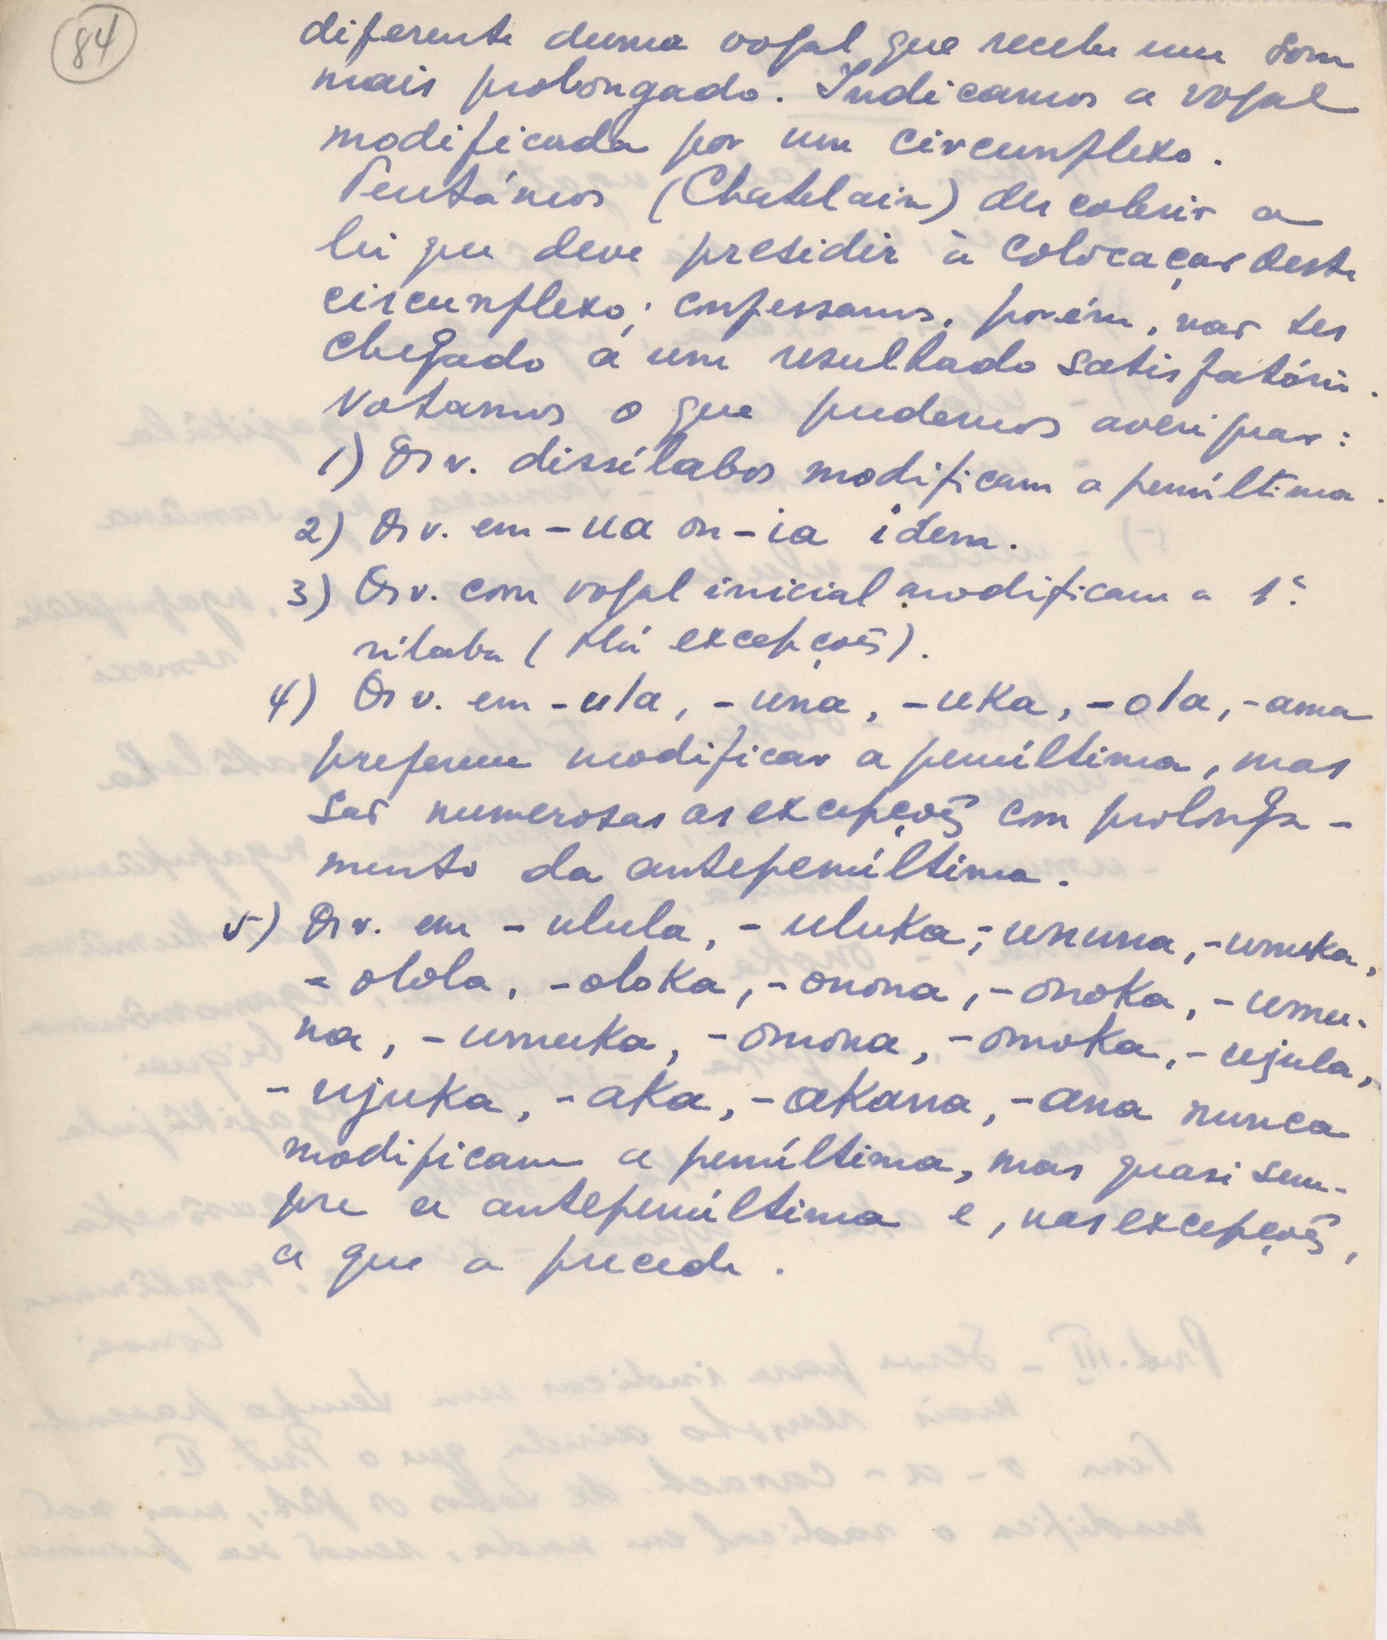 84
diferente duma vogal que recebe um som
mais prolongado. Indicamos a vogal
modificada por um circunflexo.
Tentámos (Chatelain) descobrir a
lei que deve presidir à colocação deste
circunflexo; confessamos, porém, não ter
chegado a um resultado satisfatório.
Notamos o que pudemos averiguar:
1) Os v. dissílabos modificam a penúltima.
2) Os v. em -ua ou -ia idem.
3) Os v. com vogal inicial modificam a 1ª
sílaba (há excepções).
4) Os v. em -ula, -una, -uka, -ola, -ama
preferem modificar a penúltima, mas
são numerosas as excepções com prolonga-
mento da antepenúltima.
5) Os v. em -ulula, -uluka, -ununa, -unuka,
-olola, -oloka, -onona, -onoka, -umu-
na, -umuka, -omona, -omoka, -ujula,
-ujuka, -aka, -akana, -ana nunca
modificam a penúltima, mas quasi sem-
pre a antepenúltima e, nas excepções,
a que a precede.